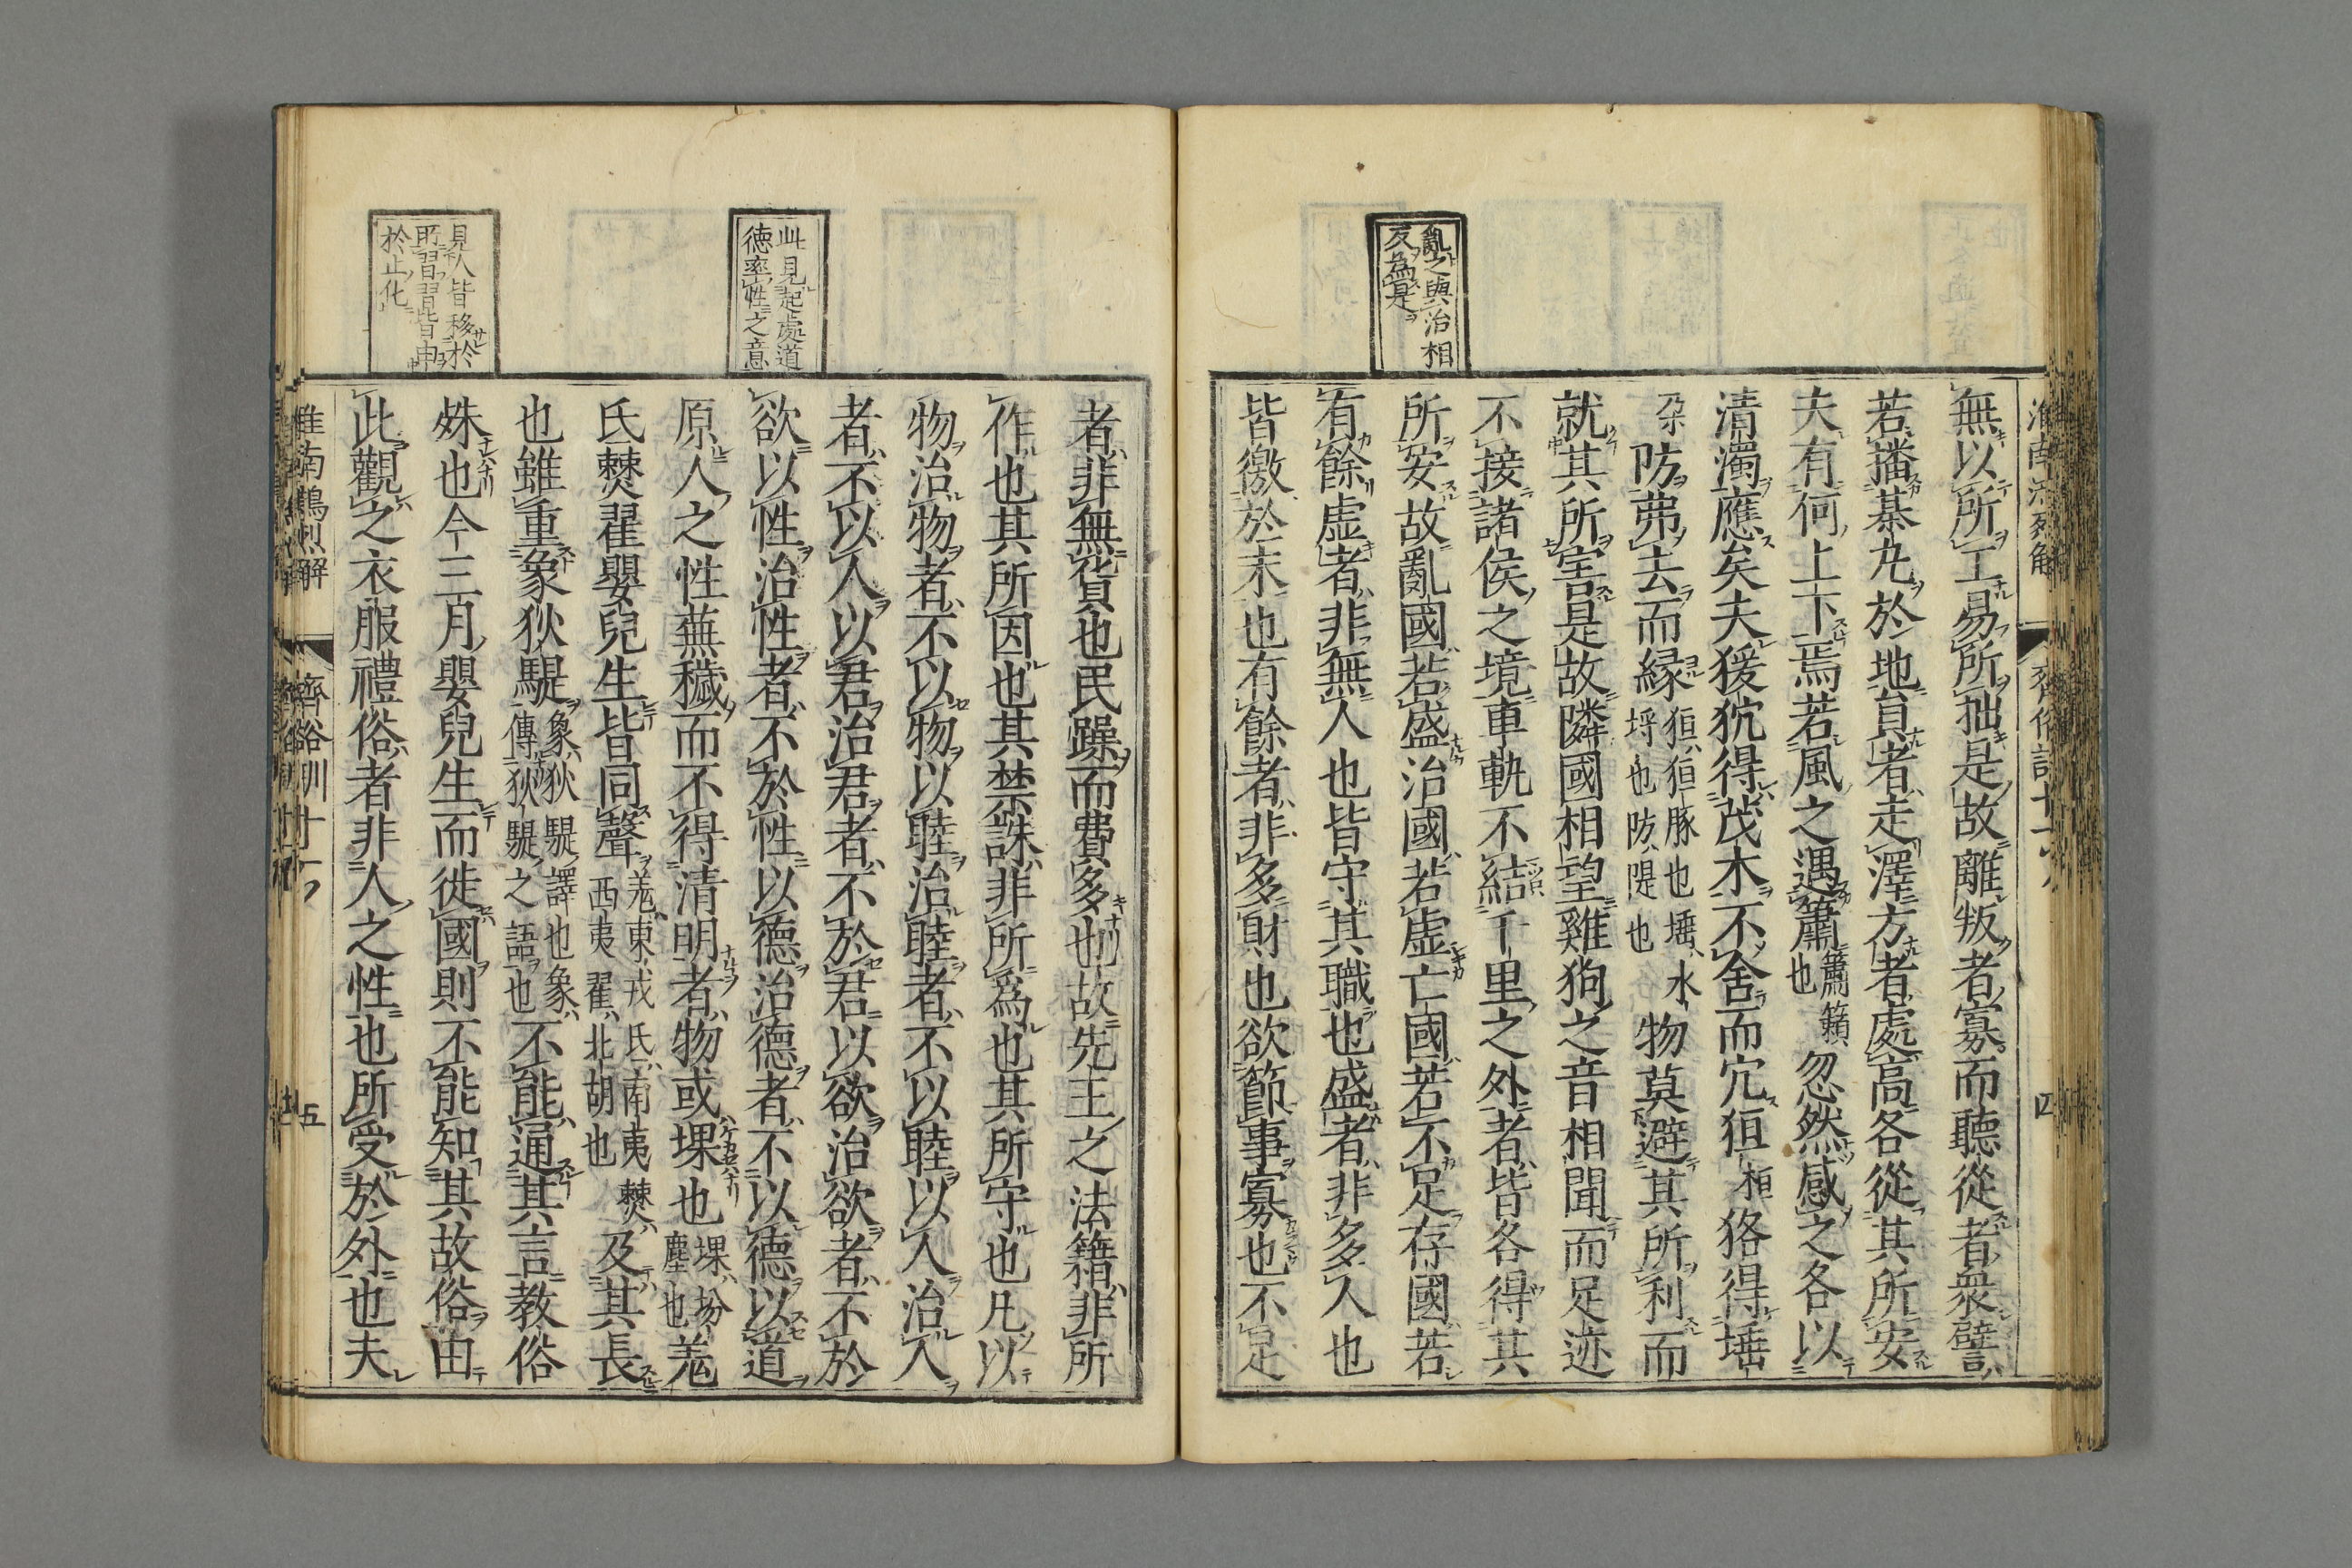 亂之與治相
反為是
無以所工易所拙是故離叛者寡而聽從者衆譬
若播棊丸於地負者走澤方者處高各從其所安
夫有何上下焉若風之遇簫簫籟也忽然感之各以
清濁應矣夫猨狖得茂木不舍而穴狟狢得埵
防弗去而緣狟狟豚也埵水埒也防隄也物莫避其所利而
就其所害是故隣國相望雞狗之音相聞而足迹
不接諸侯之境車軌不結千里之外者皆各得其
所安故亂國若盛治國若虛亡國若不足存國若
有餘虛者非無人也皆守其職也盛者非多人也
皆徼於末也有餘者非多財也欲節事寡也不足
四
此見起處道
德率性之意
見人皆移於
所習習皆由
於止化
者非無貨也民躁而費多也故先王之法籍非所
作也其所因也其禁誅非所為也其所守也凡以
物治物者不以物以睦治睦者不以睦以人治人
者不以人以君治君者不於君以欲治欲者不於
欲以性治性者不於性以德治德者不以德以道
原人之性蕪穢而不得清明者物或堁也堁坋塵也羗
氏僰翟嬰兒生皆同聲羗東戎西夷氏南夷翟北胡也僰及其長
也雖重象狄騠象狄騠譯也象傳狄騠之語也不能通其言教俗
殊也今三月嬰兒生而徙國則不能知其故俗由
此觀之衣服禮俗者非人之性也所受於外也夫
淮南鴻烈解 齊俗訓十一 五